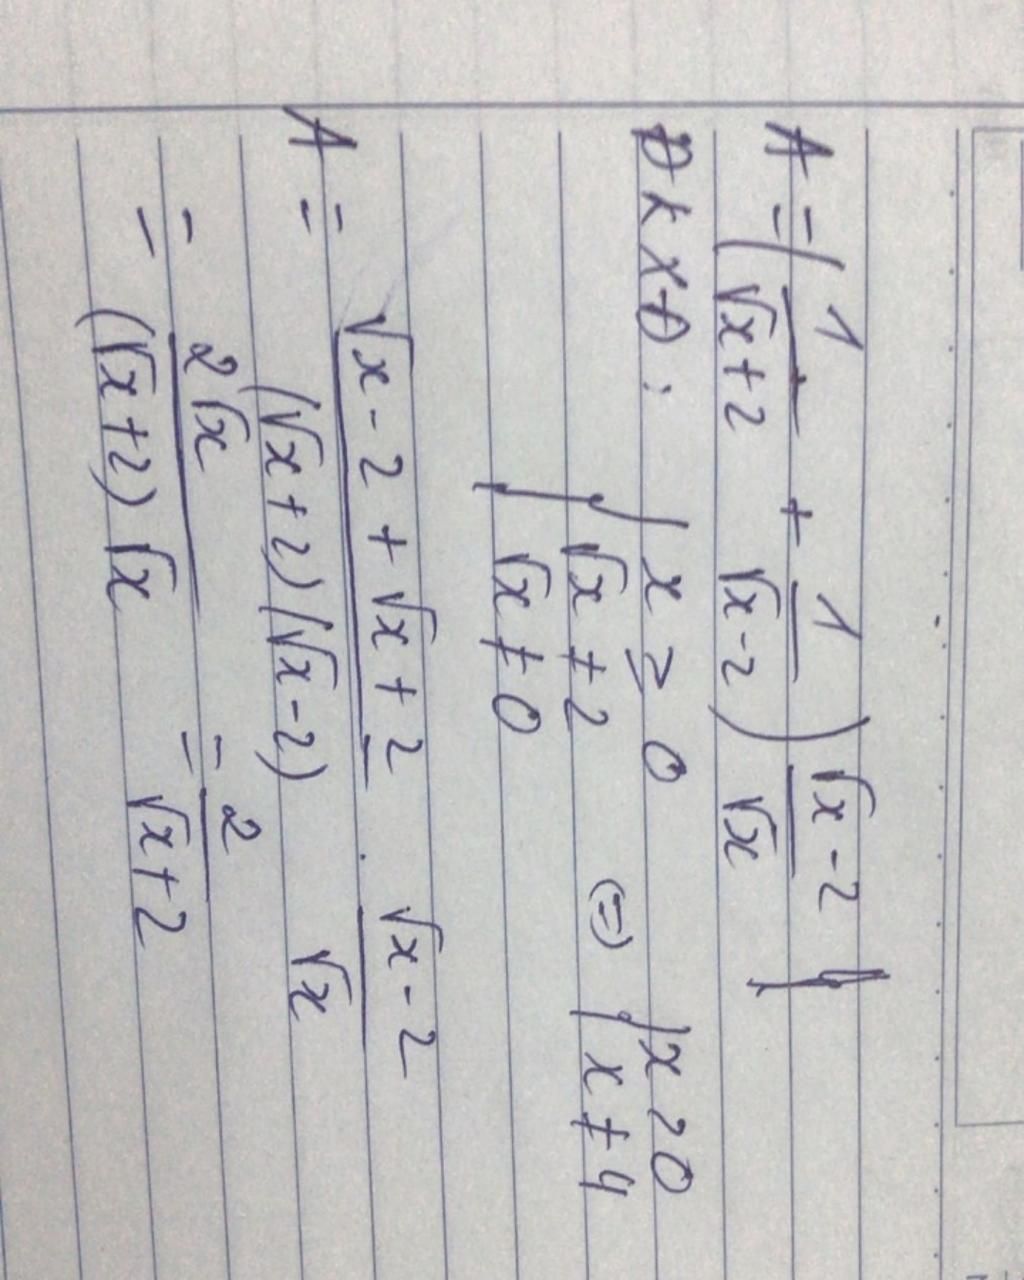 A = (1/(√x+2) + 1/(√x-2)) (√x-2)/√x
ĐKXĐ: { x ≥ 0 ; √x ≠ 2 ; √x ≠ 0 (=) { x > 0 ; x ≠ 4
A = (√x-2+√x+2)/((√x+2)(√x-2)) . (√x-2)/√x
= 2√x/((√x+2)√x) = 2/(√x+2)